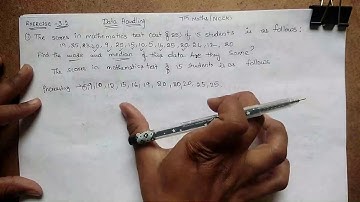 Exercise 3.2 Data Handling 7th Maths (NCERT)
① The scores in mathematics test (out of 25) of 15 students is as follows:
19, 25, 23, 20, 9, 20, 15, 10, 5, 16, 25, 20, 24, 12, 20
Find the mode and median of this data. Are they same?
The scores in mathematics test of 15 students is as follows
5, 9, 10, 12, 15, 16, 19, 20, 20, 20, 25, 25